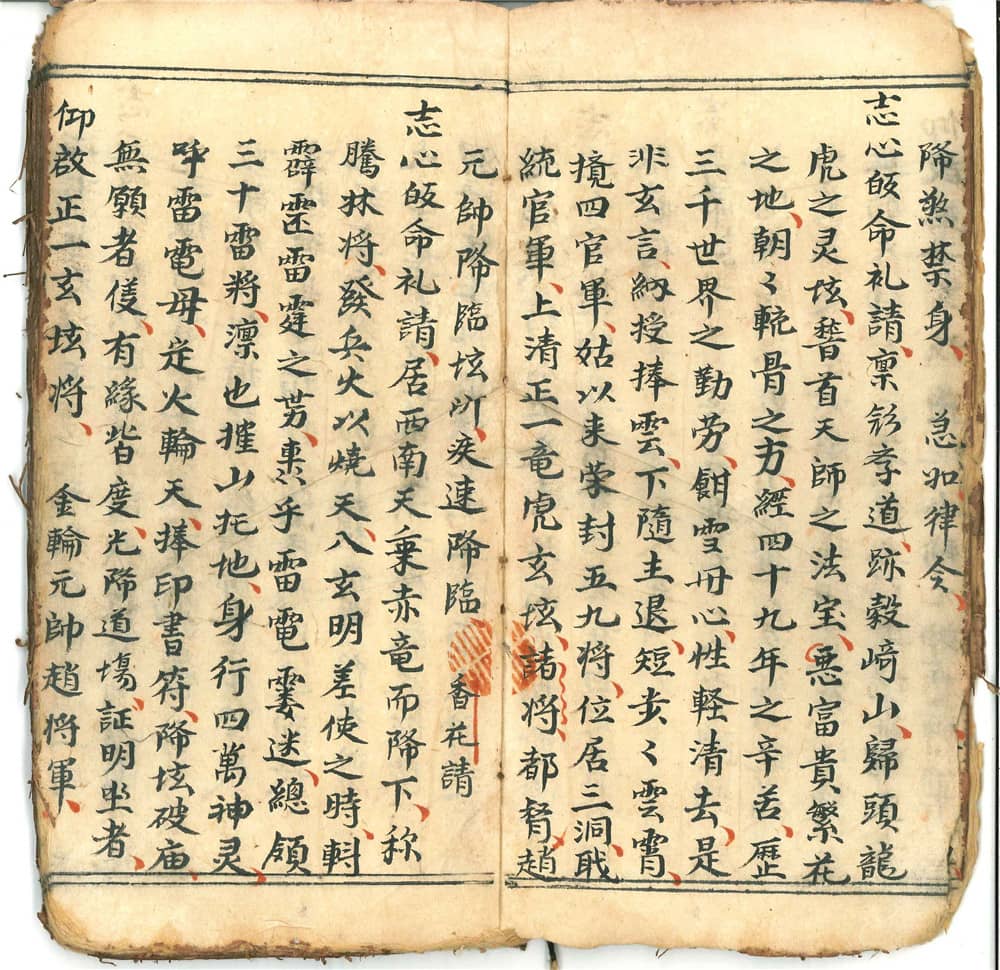 降煞禁身、 急如律令、
志心皈命礼請、稟於孝道、跡穀﨑山、歸頭龍
虎之灵坛、誓首天師之法宝、悪富貴繁花
之地、朝〻輓骨之方、經四十九年之辛苦、歴
三千世界之勤劳、雪丹心、性軽清去、是
非玄言、授捧雲、下隨主退、短〻雲霄、
撹四官軍、姑以来荣封五九将、位居三洞戢
統官軍、上清正一竜虎玄坛、諸将、都督趙
元帥降臨坛所、疾速降臨 香花請
志心皈命礼請、居西南天乗赤竜而降下、称
騰林将、發兵火以燒天、八玄明差使之時、斟
霹雳雷霆之势、乎雷電迷、總領
三十雷將、凛也摧山托地、身行四萬神灵、
呼雷電母、定火輪天、捧印書符、降坛破庙、
無願者僅、有緣皆度、允降道場、証明坐者、
仰啟正一玄坛将、 金輪元帥趙将軍、